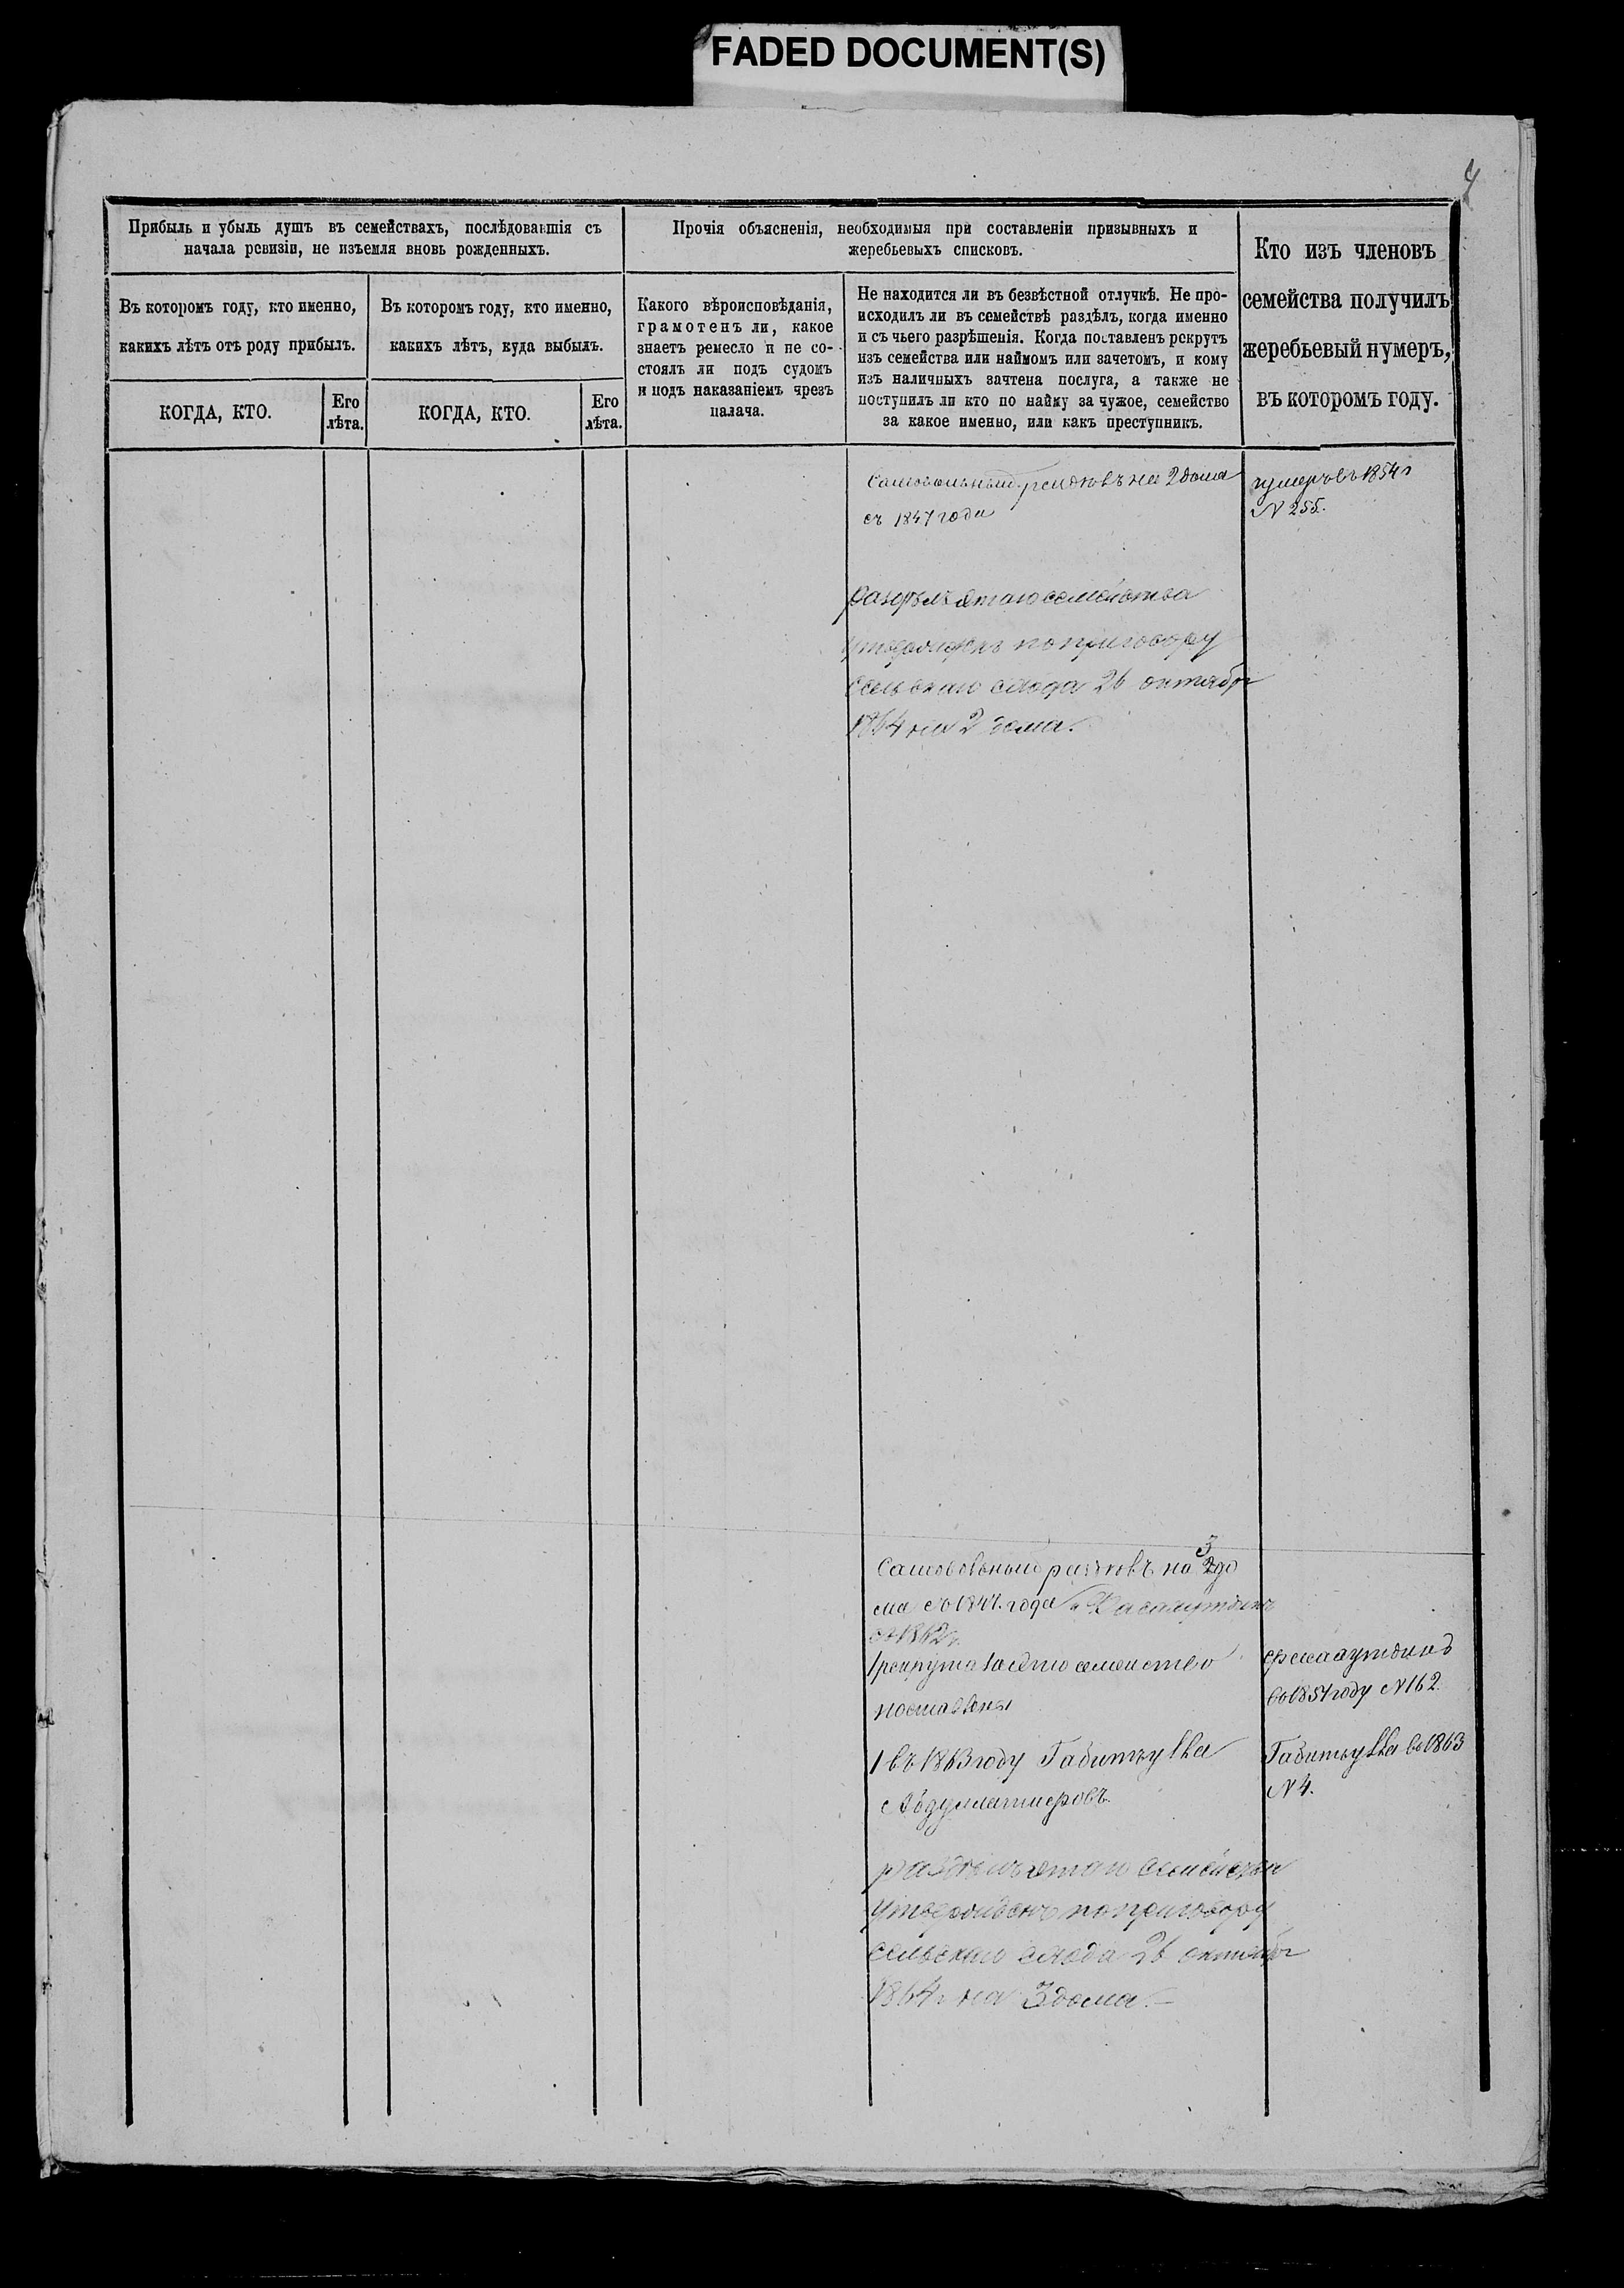 FADED DOCUMENT(S)
4
Прибыль и убыль душъ въ семействахъ, послѣдовавшія съ
начала ревизіи, не изъемля вновь рожденныхъ.
Въ которомъ году, кто именно,
какихъ лѣтъ отъ роду прибылъ.
КОГДА, КТО.
Его
лѣта.
Въ которомъ году, кто именно,
какихъ лѣтъ, куда выбылъ.
КОГДА, КТО.
Его
лѣта.
Прочія объясненія, необходимыя при составленіи призывныхъ и
жеребьевыхъ списковъ.
Какого вѣроисповѣданія,
грамотенъ ли, какое
знаетъ ремесло и не со-
стоялъ ли подъ судомъ
и подъ наказаніемъ чрезъ
палача.
Не находится ли въ безвѣстной отлучкѣ. Не про-
исходилъ ли въ семействѣ раздѣлъ, когда именно
и съ чьего разрѣшенія. Когда поставленъ рекрутъ
изъ семейства или наймомъ или зачетомъ, и кому
изъ наличныхъ зачтена послуга, а также не
поступилъ ли кто по найму за чужое, семейство
за какое именно, или какъ преступникъ.
Кто изъ членовъ
семейства получилъ
жеребьевый нумеръ,
въ которомъ году.
на 2 дома
съ 1847 года
нумеръ въ 1854 г
N 255.
семейства
по приговору
схода 26 октябр
1864 на 2 дома.
на 3 до
ма съ 1847 года
1 рекрута семейство
въ 1857 году N 162
1 въ 1863 году Габитулла
Габитулла въ 1863
N 4.
раздѣлъ семейства
утвержденъ по приговору
схода 26 октябр
1864 г на 3 дома. —